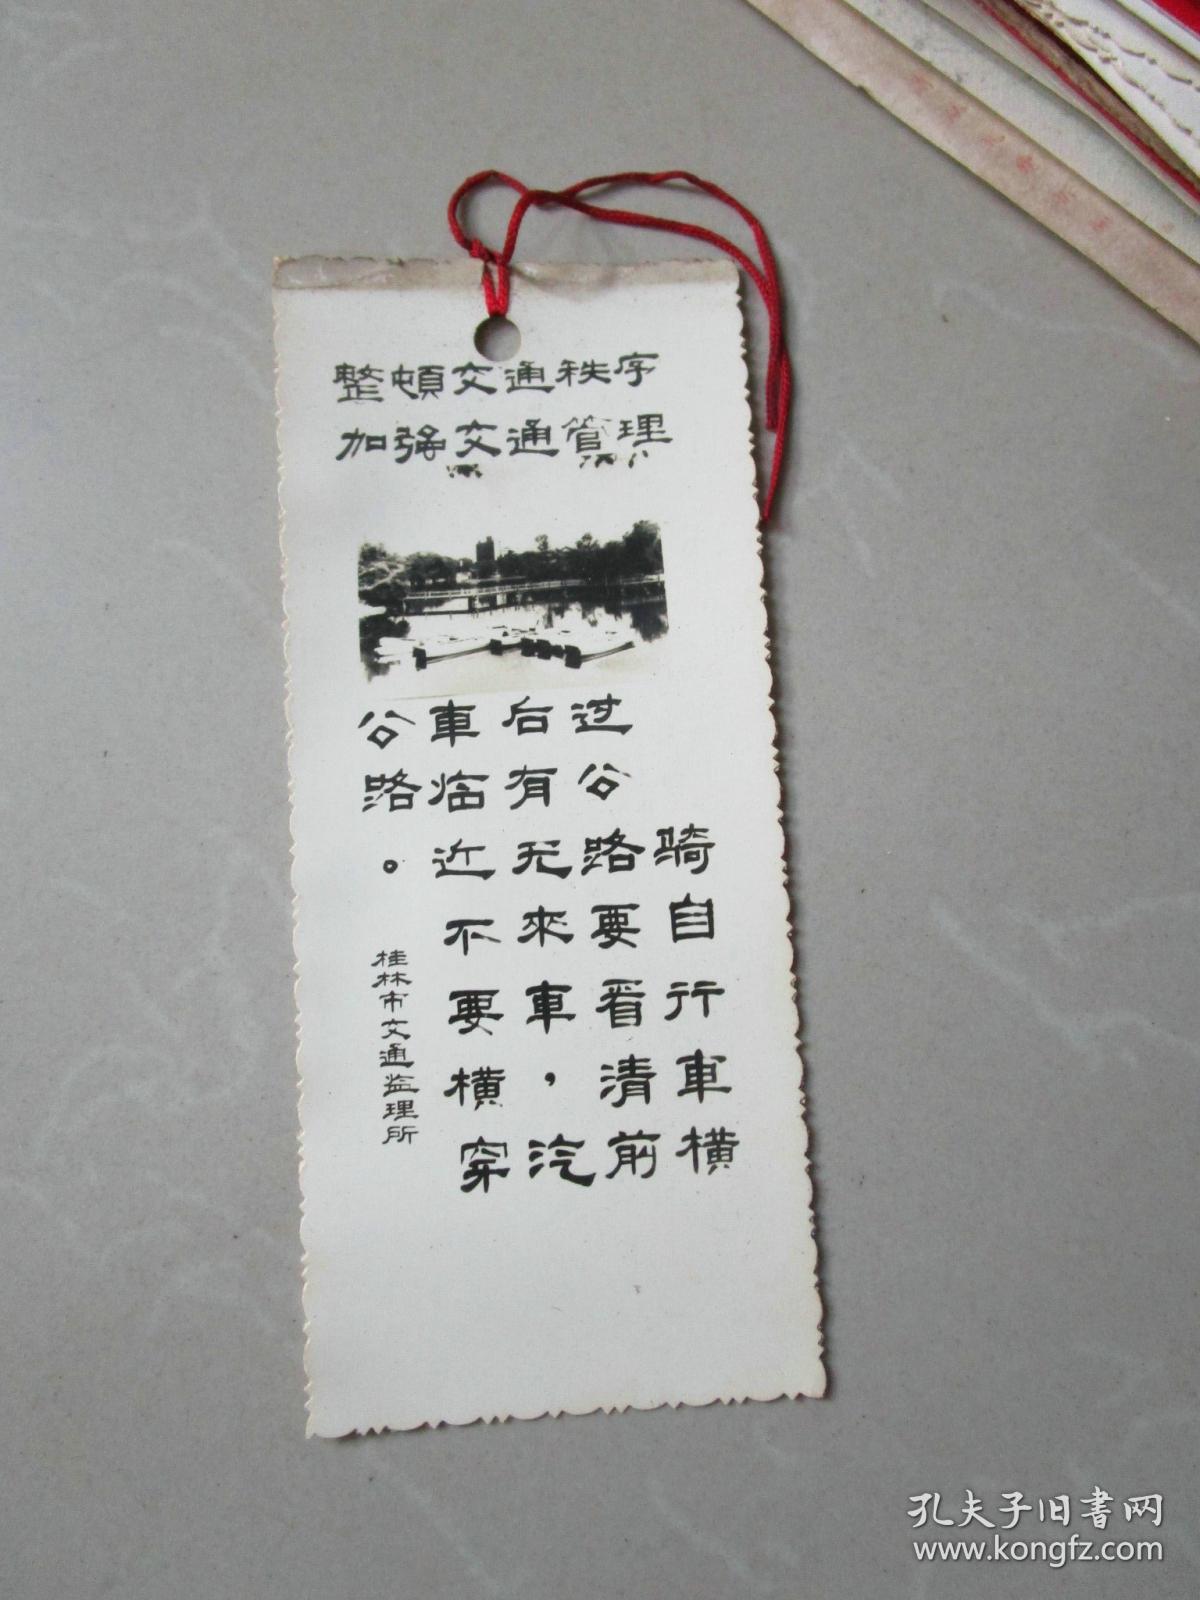 整頓交通秩序
加强交通管理
骑自行車横
过公路要看清前
后有无來車，汽
車临近不要横穿
公路。
桂林市交通监理所
孔夫子旧书网
www.kongfz.com